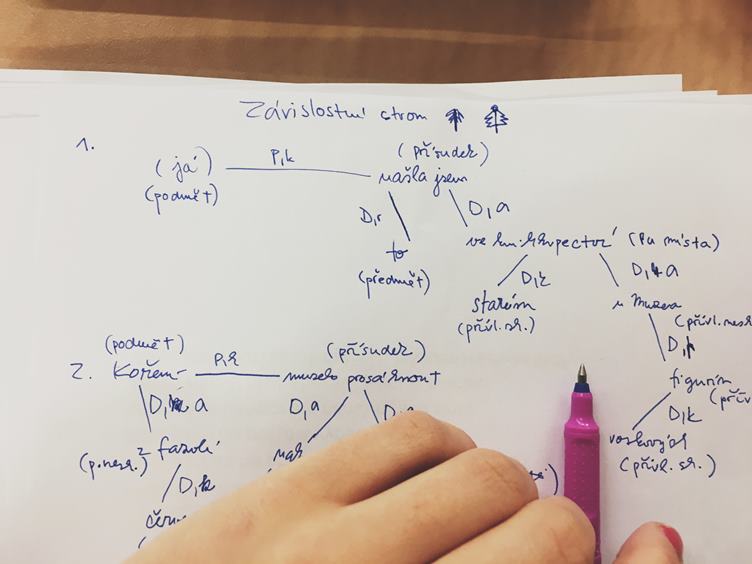 Závislostní strom
1.
(já) P,k (přísudek)
(podmět) našla jsem
D,r D,a
to (předmět)
ve kn. (Pu místa)
D,k D,a
starém
(přívl. sh.)
u Muzea
(přívl. nesh.
D,
figurín
D,k
voskových
(přívl. sh.)
(podmět) (přísudek)
2. Koření P,k muselo prosáknout
D,a D,a
(p. nesh.) z fazolí
D,k